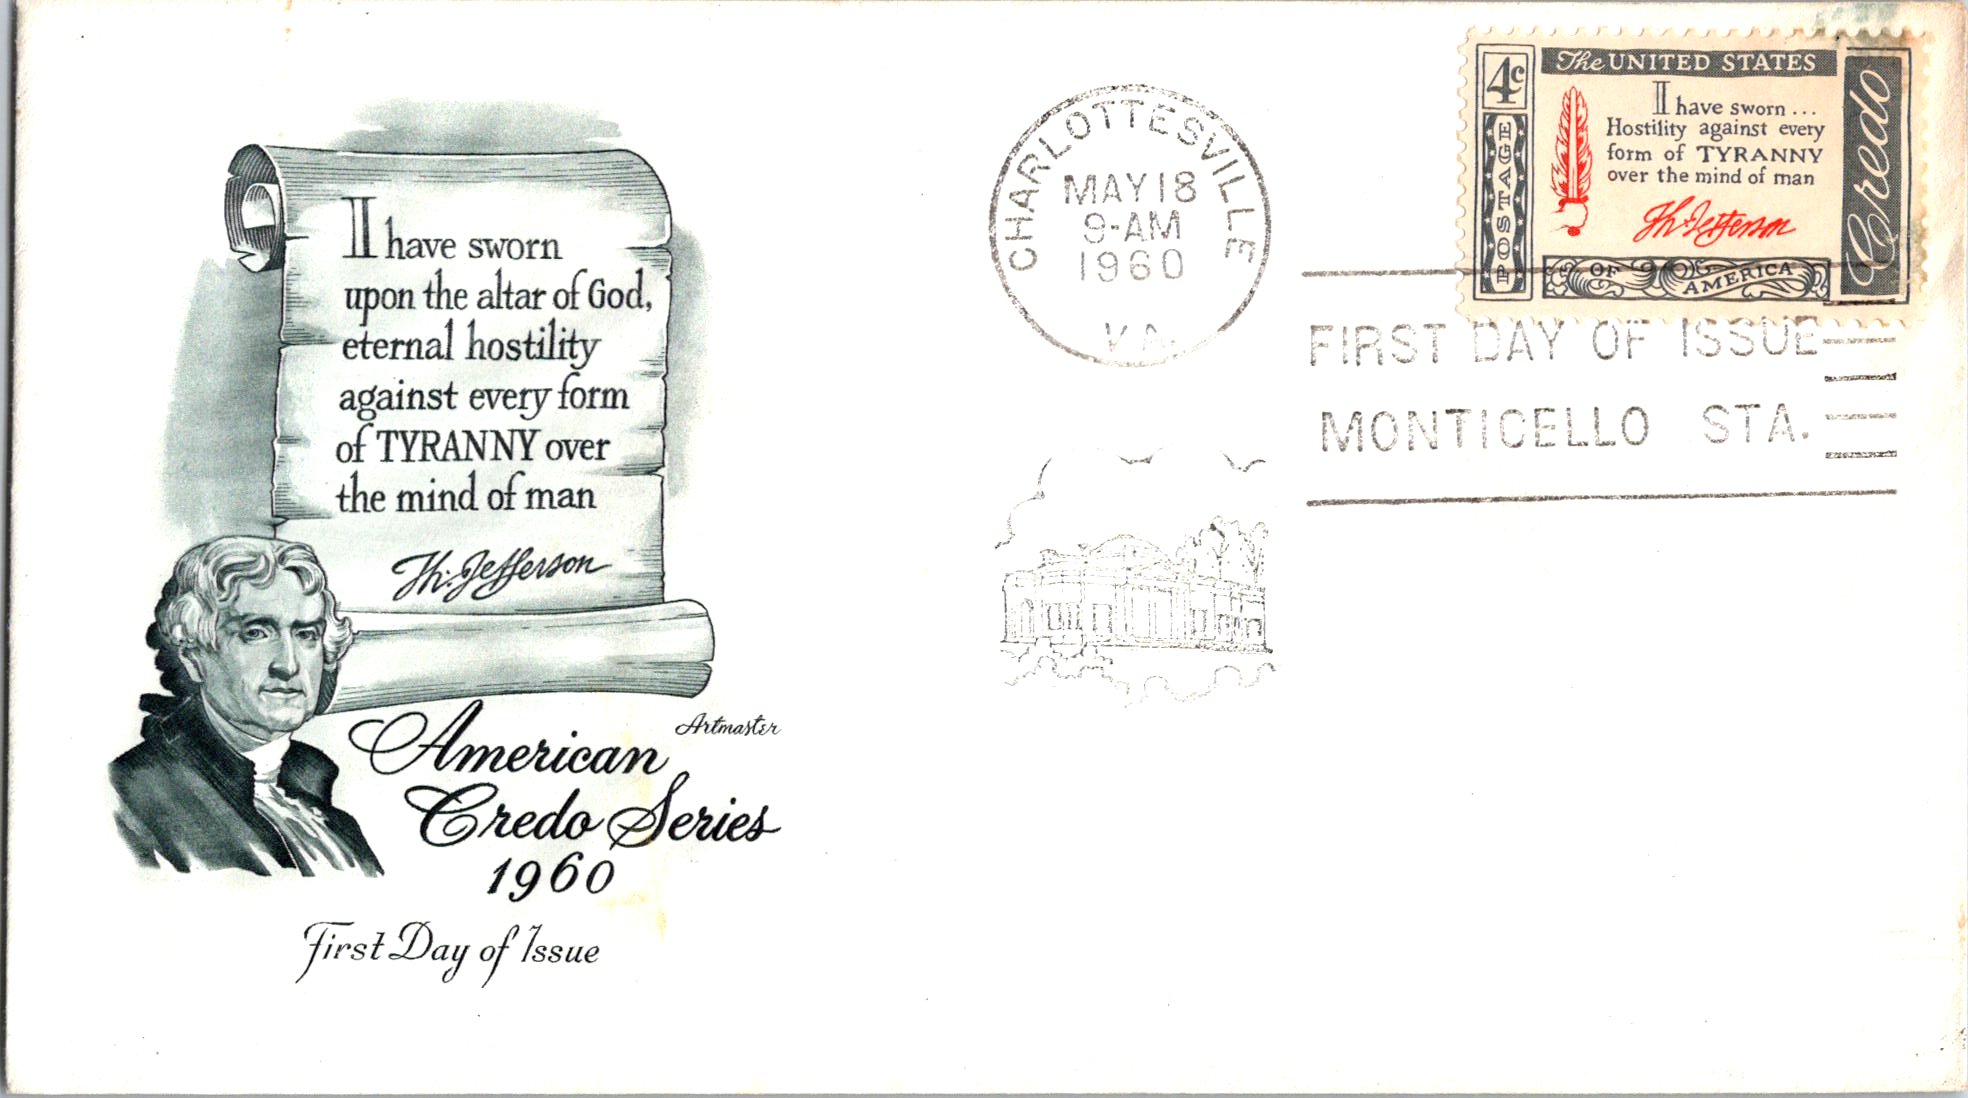 I have sworn
upon the altar of God,
eternal hostility
against every form
of TYRANNY over
the mind of man
Th: Jefferson
Artmaster
American
Credo Series
1960
First Day of Issue
CHARLOTTESVILLE
MAY 18
9-AM
1960
VA.
4c
The UNITED STATES
POSTAGE
I have sworn...
Hostility against every
form of TYRANNY
over the mind of man
Th: Jefferson
OF AMERICA
Credo
FIRST DAY OF ISSUE
MONTICELLO STA.